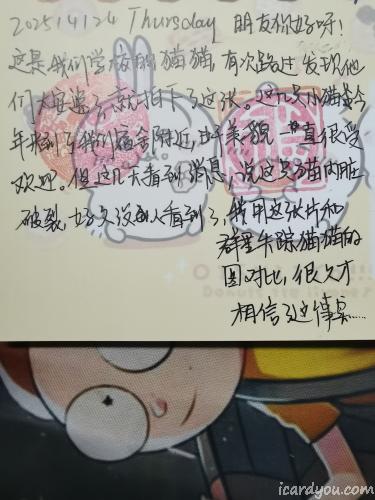 2025/4/24 Thursday 朋友你好呀!
这是我们学校的猫猫,有次路过发现他
们大在 就拍下了这张。这几只小猫
年 到了我们宿舍附近, 美貌一直很受
欢迎。但这几天看到消息,说这只猫内脏
破裂,好久没人看到了,我用这张片和
群里失踪猫猫的
图对比,很久才
相信了这件事……
icardyou.com